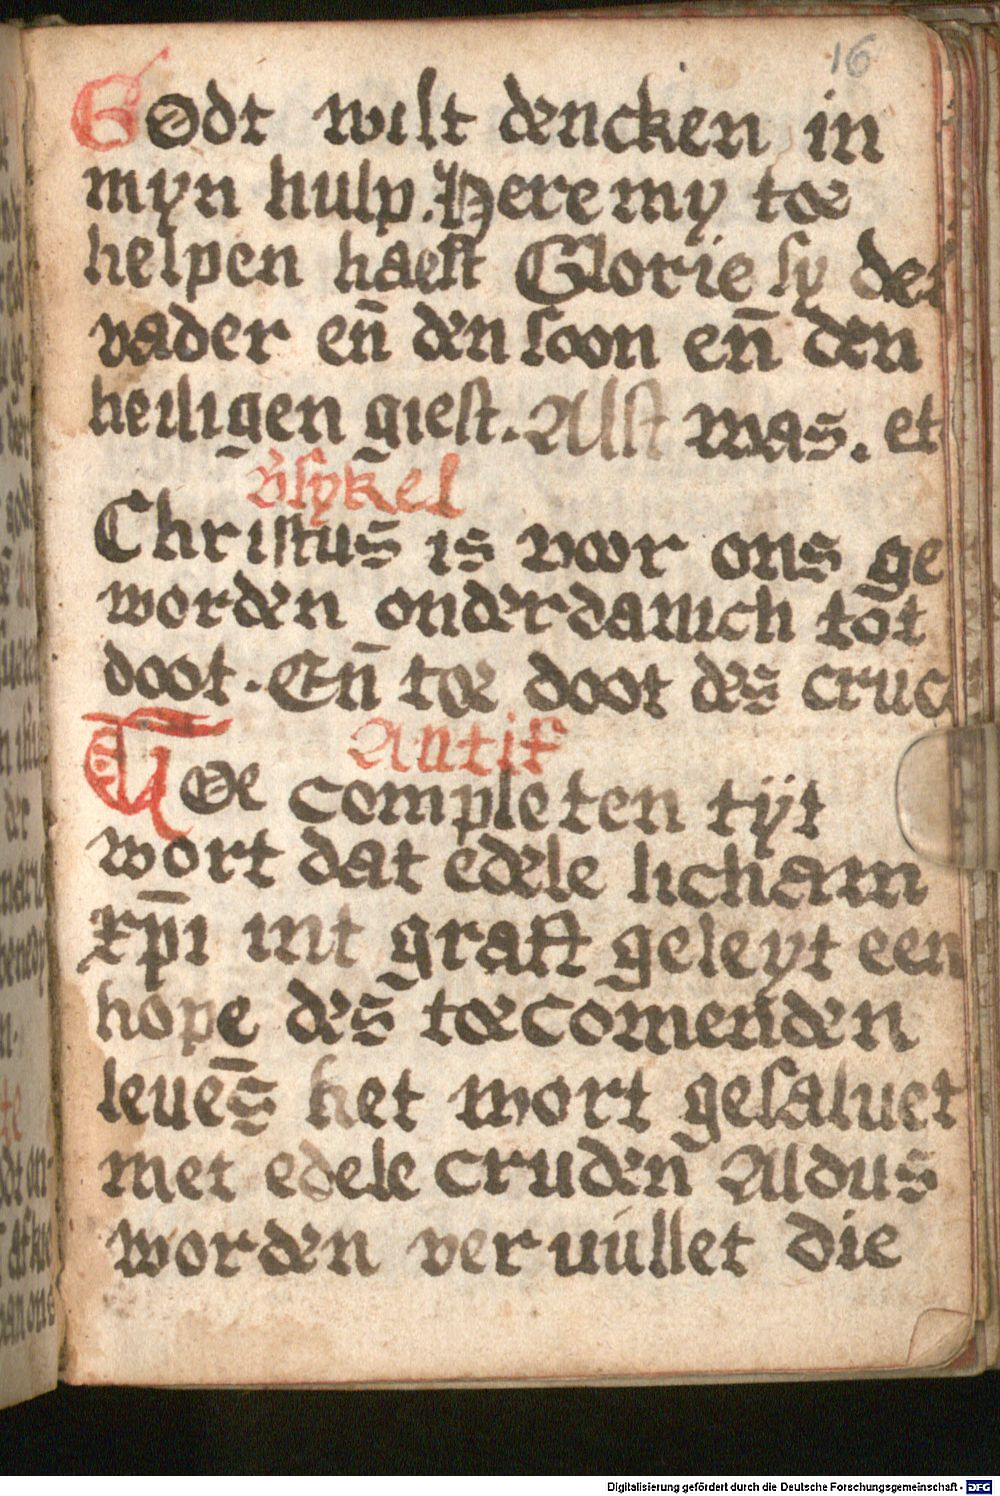 16
Godt wilt dencken in
myn hulp. Here my toe
helpen haest Glorie sy de
vader en̄ den soon en̄ den
heiligen giest. Alst was. et
Christus is voor ons ge
worden onderdanich tot
doot. En̄ toe doot des cruc
Antif
Toe completen tyt
wort dat edele licham
xp̄i int graft geleyt een
hope des toecomenden
leuēs het wort gesaluet
met edele cruden Aldus
worden veruullet die
Digitalisierung gefördert durch die Deutsche Forschungsgemeinschaft - DFG